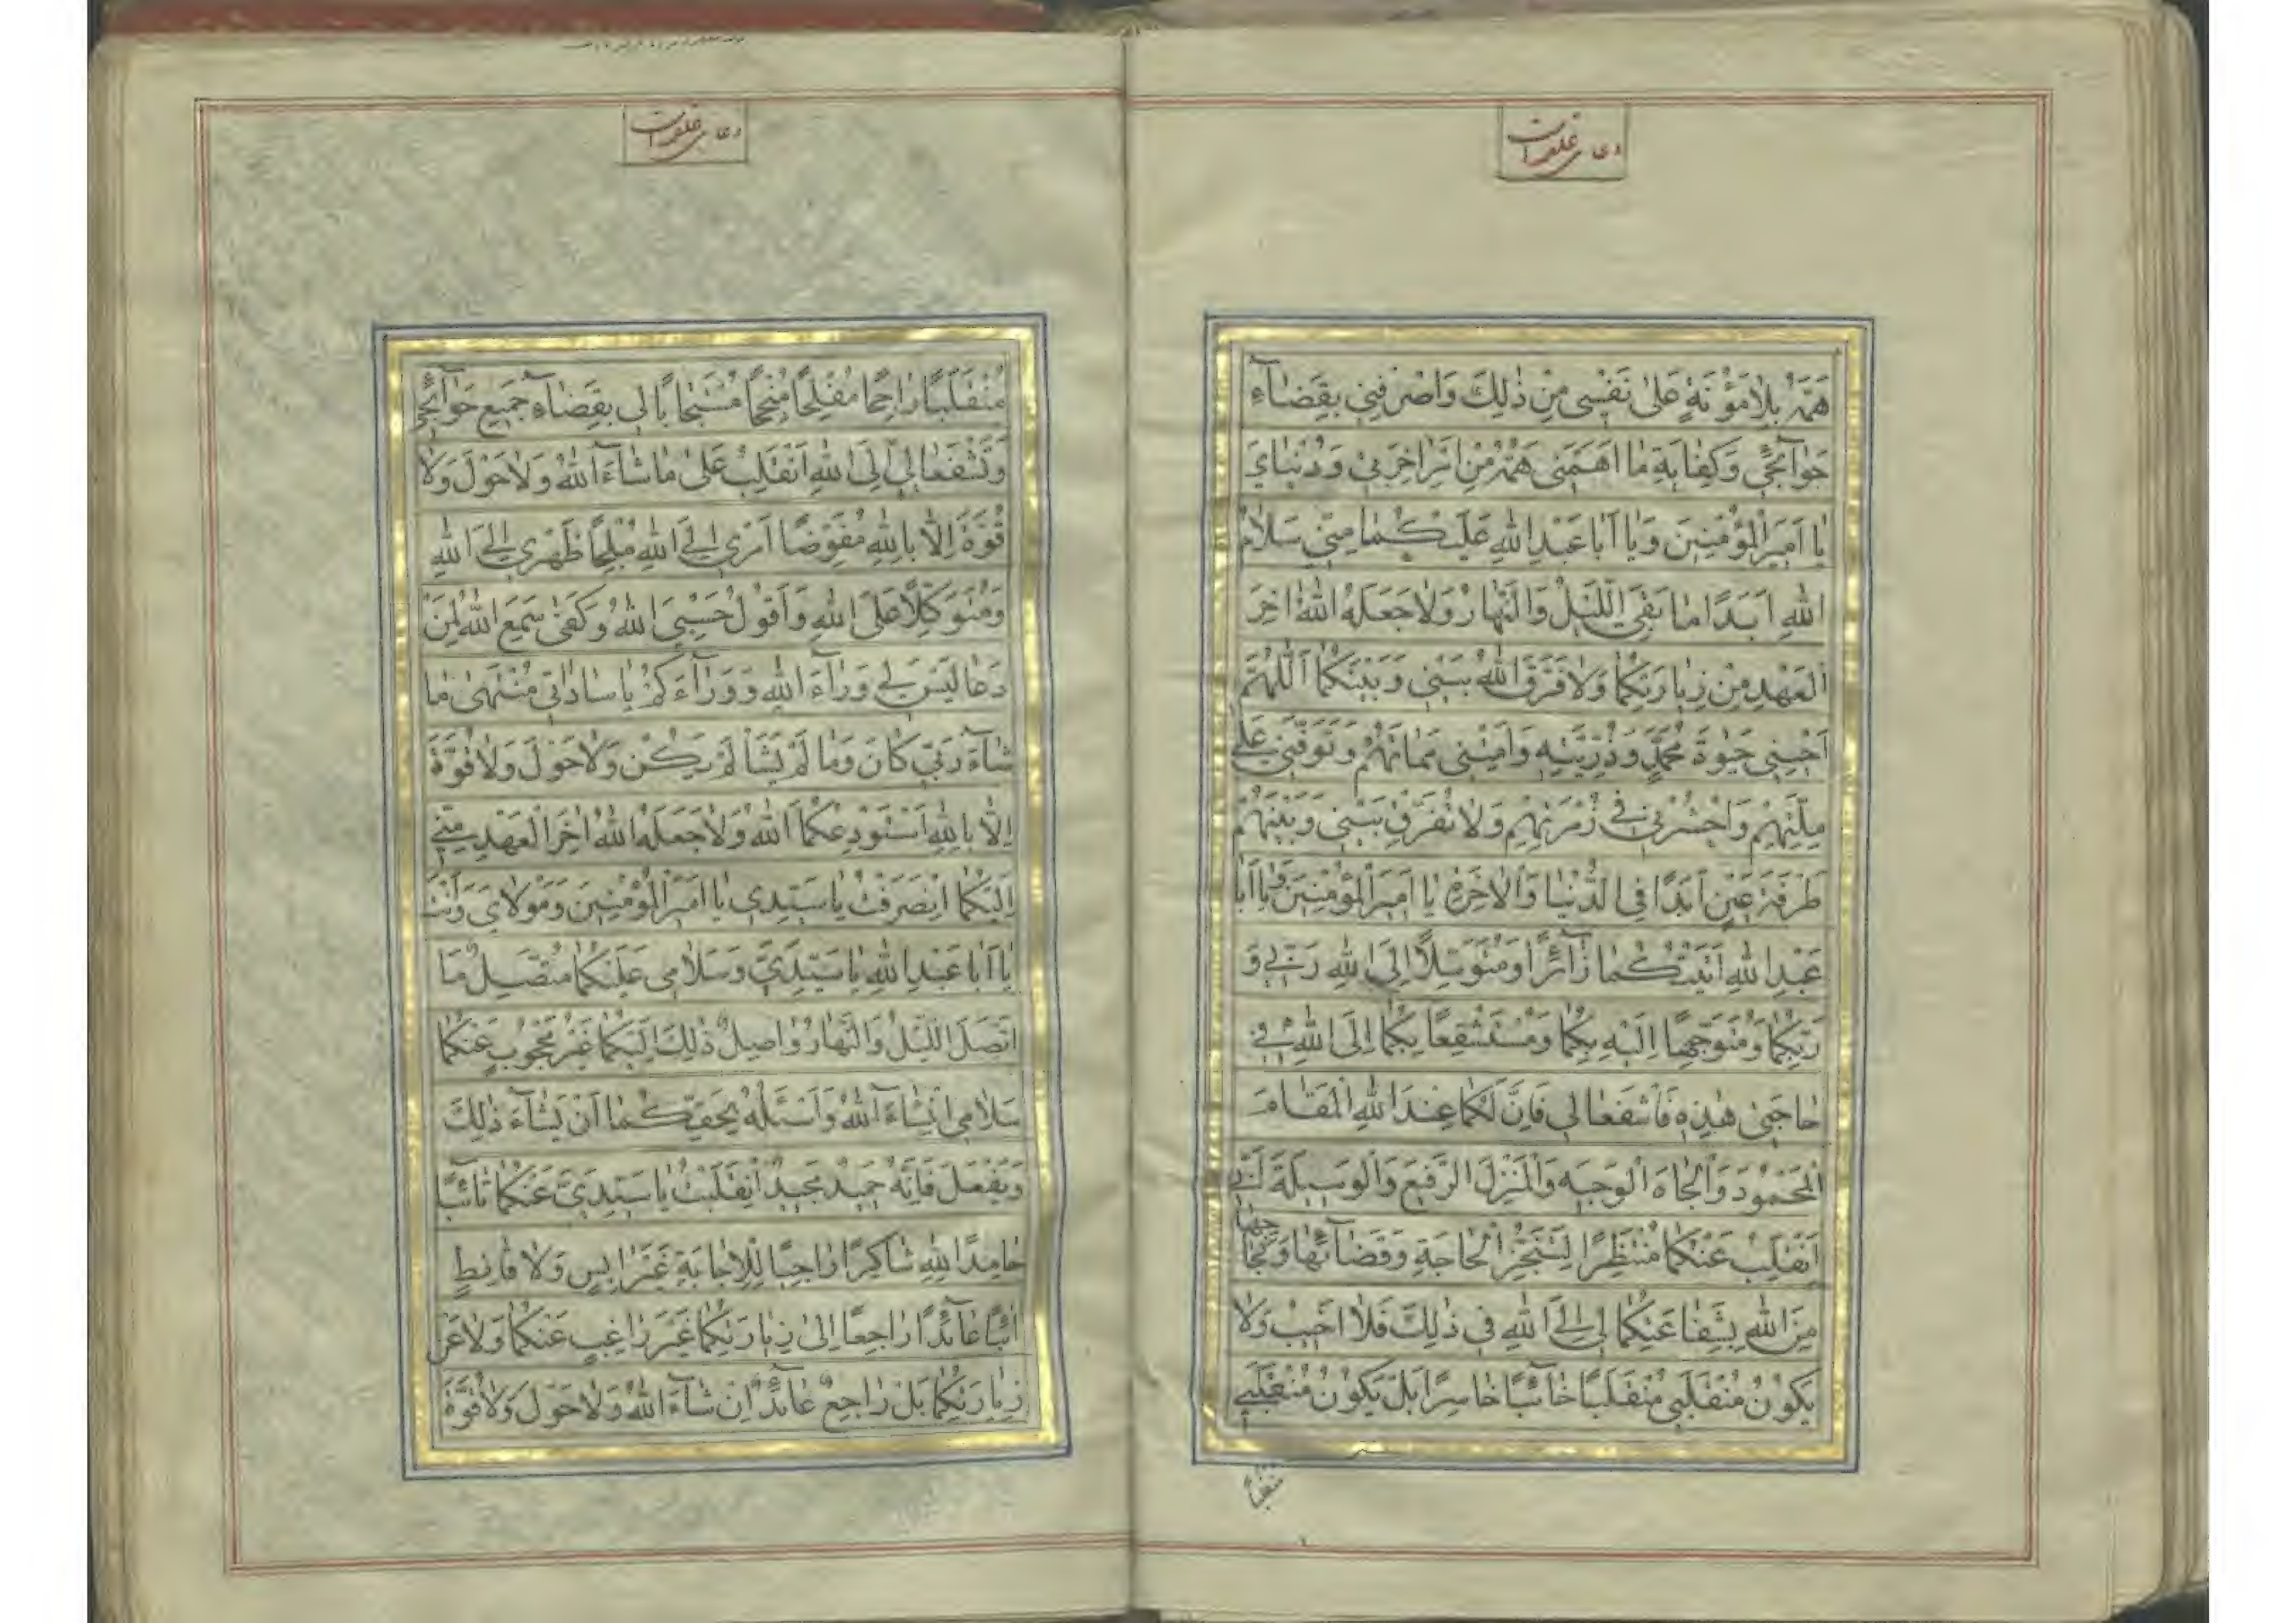 دعای علقمه است
هَمَّهُ بِلَا مَؤُنَةٍ عَلىٰ نَفْسِى مِنْ ذٰلِكَ وَاصْرِفْنِى بِقَضَاۤءِ
حَوَاۤئِجِى وَكِفَايَةِ مَا اَهَمَّنِى هَمُّهُ مِنْ اَمْرِ اٰخِرَتِى وَدُنْيَاىَ
يَا اَمِيرَ الْمُؤْمِنِينَ وَيَا اَبَا عَبْدِ اللهِ عَلَيْكُمَا مِنِّى سَلَامُ
اللهِ اَبَدًا مَا بَقِىَ اللَّيْلُ وَالنَّهَارُ وَلَا جَعَلَهُ اللهُ اٰخِرَ
الْعَهْدِ مِنْ زِيَارَتِكُمَا وَلَا فَرَّقَ اللهُ بَيْنِى وَبَيْنَكُمَا اَللّٰهُمَّ
اَحْيِنِى حَيٰوةَ مُحَمَّدٍ وَذُرِّيَّتِهِ وَاَمِتْنِى مَمَاتَهُمْ وَتَوَفَّنِى عَلىٰ
مِلَّتِهِمْ وَاحْشُرْنِى فِى زُمْرَتِهِمْ وَلَا تُفَرِّقْ بَيْنِى وَبَيْنَهُمْ
طَرْفَةَ عَيْنٍ اَبَدًا فِى الدُّنْيَا وَالْاٰخِرَةِ يَا اَمِيرَ الْمُؤْمِنِينَ وَيَا اَبَا
عَبْدِ اللهِ اَتَيْتُكُمَا زَاۤئِرًا وَمُتَوَسِّلًا اِلَى اللهِ رَبِّى وَ
رَبِّكُمَا وَمُتَوَجِّهًا اِلَيْهِ بِكُمَا وَمُسْتَشْفِعًا بِكُمَا اِلَى اللهِ فِى
حَاجَتِى هٰذِهِ فَاشْفَعَا لِى فَاِنَّ لَكُمَا عِنْدَ اللهِ الْمَقَامَ
الْمَحْمُودَ وَالْجَاهَ الْوَجِيهَ وَالْمَنْزِلَ الرَّفِيعَ وَالْوَسِيلَةَ اِنِّى
اَنْقَلِبُ عَنْكُمَا مُنْتَظِرًا لِتَنَجُّزِ الْحَاجَةِ وَقَضَاۤئِهَا وَنَجَاحِهَا
مِنَ اللهِ بِشَفَاعَتِكُمَا لِى اِلَى اللهِ فِى ذٰلِكَ فَلَا اَخِيبُ وَلَا
يَكُونُ مُنْقَلَبِى مُنْقَلَبًا خَاۤئِبًا خَاسِرًا بَلْ يَكُونُ مُنْقَلَبِى
منقلبا
دعای علقمه است
مُنْقَلَبًا رَاجِحًا مُفْلِحًا مُنْجِحًا مُسْتَجَابًا لِى بِقَضَاۤءِ جَمِيعِ حَوَاۤئِجِى
وَتَشْفَعَا لِى اِلَى اللهِ اَنْقَلِبُ عَلىٰ مَا شَاۤءَ اللهُ وَلَا حَوْلَ وَلَا
قُوَّةَ اِلَّا بِاللهِ مُفَوِّضًا اَمْرِى اِلَى اللهِ مُلْجِأً ظَهْرِى اِلَى اللهِ
وَمُتَوَكِّلًا عَلَى اللهِ وَاَقُولُ حَسْبِىَ اللهُ وَكَفىٰ سَمِعَ اللهُ لِمَنْ
دَعَا لَيْسَ لِى وَرَاۤءَ اللهِ وَوَرَاۤءَكُمْ يَا سَادَاتِى مُنْتَهىٰ مَا
شَاۤءَ رَبِّى كَانَ وَمَا لَمْ يَشَأْ لَمْ يَكُنْ وَلَا حَوْلَ وَلَا قُوَّةَ
اِلَّا بِاللهِ اَسْتَوْدِعُكُمَا اللهَ وَلَا جَعَلَهُ اللهُ اٰخِرَ الْعَهْدِ مِنِّى
اِلَيْكُمَا انْصَرَفْتُ يَا سَيِّدِى يَا اَمِيرَ الْمُؤْمِنِينَ وَمَوْلَاىَ وَاَنْتَ
يَا اَبَا عَبْدِ اللهِ يَا سَيِّدِى وَسَلَامِى عَلَيْكُمَا مُتَّصِلٌ مَا
اتَّصَلَ اللَّيْلُ وَالنَّهَارُ وَاصِلٌ ذٰلِكَ اِلَيْكُمَا غَيْرُ مَحْجُوبٍ عَنْكُمَا
سَلَامِى اِنْشَاۤءَ اللهُ وَاَسْئَلُهُ بِحَقِّكُمَا اَنْ يَشَاۤءَ ذٰلِكَ
وَيَفْعَلَ فَاِنَّهُ حَمِيدٌ مَجِيدٌ اِنْقَلَبْتُ يَا سَيِّدَىَّ عَنْكُمَا تَاۤئِبًا
حَامِدًا لِلّٰهِ شَاكِرًا رَاجِيًا لِلْاِجَابَةِ غَيْرَ اٰيِسٍ وَلَا قَانِطٍ
اٰئِبًا عَاۤئِدًا رَاجِعًا اِلىٰ زِيَارَتِكُمَا غَيْرَ رَاغِبٍ عَنْكُمَا وَلَا عَنْ
زِيَارَتِكُمَا بَلْ رَاجِعٌ عَاۤئِدٌ اِنْ شَاۤءَ اللهُ وَلَا حَوْلَ وَلَا قُوَّةَ